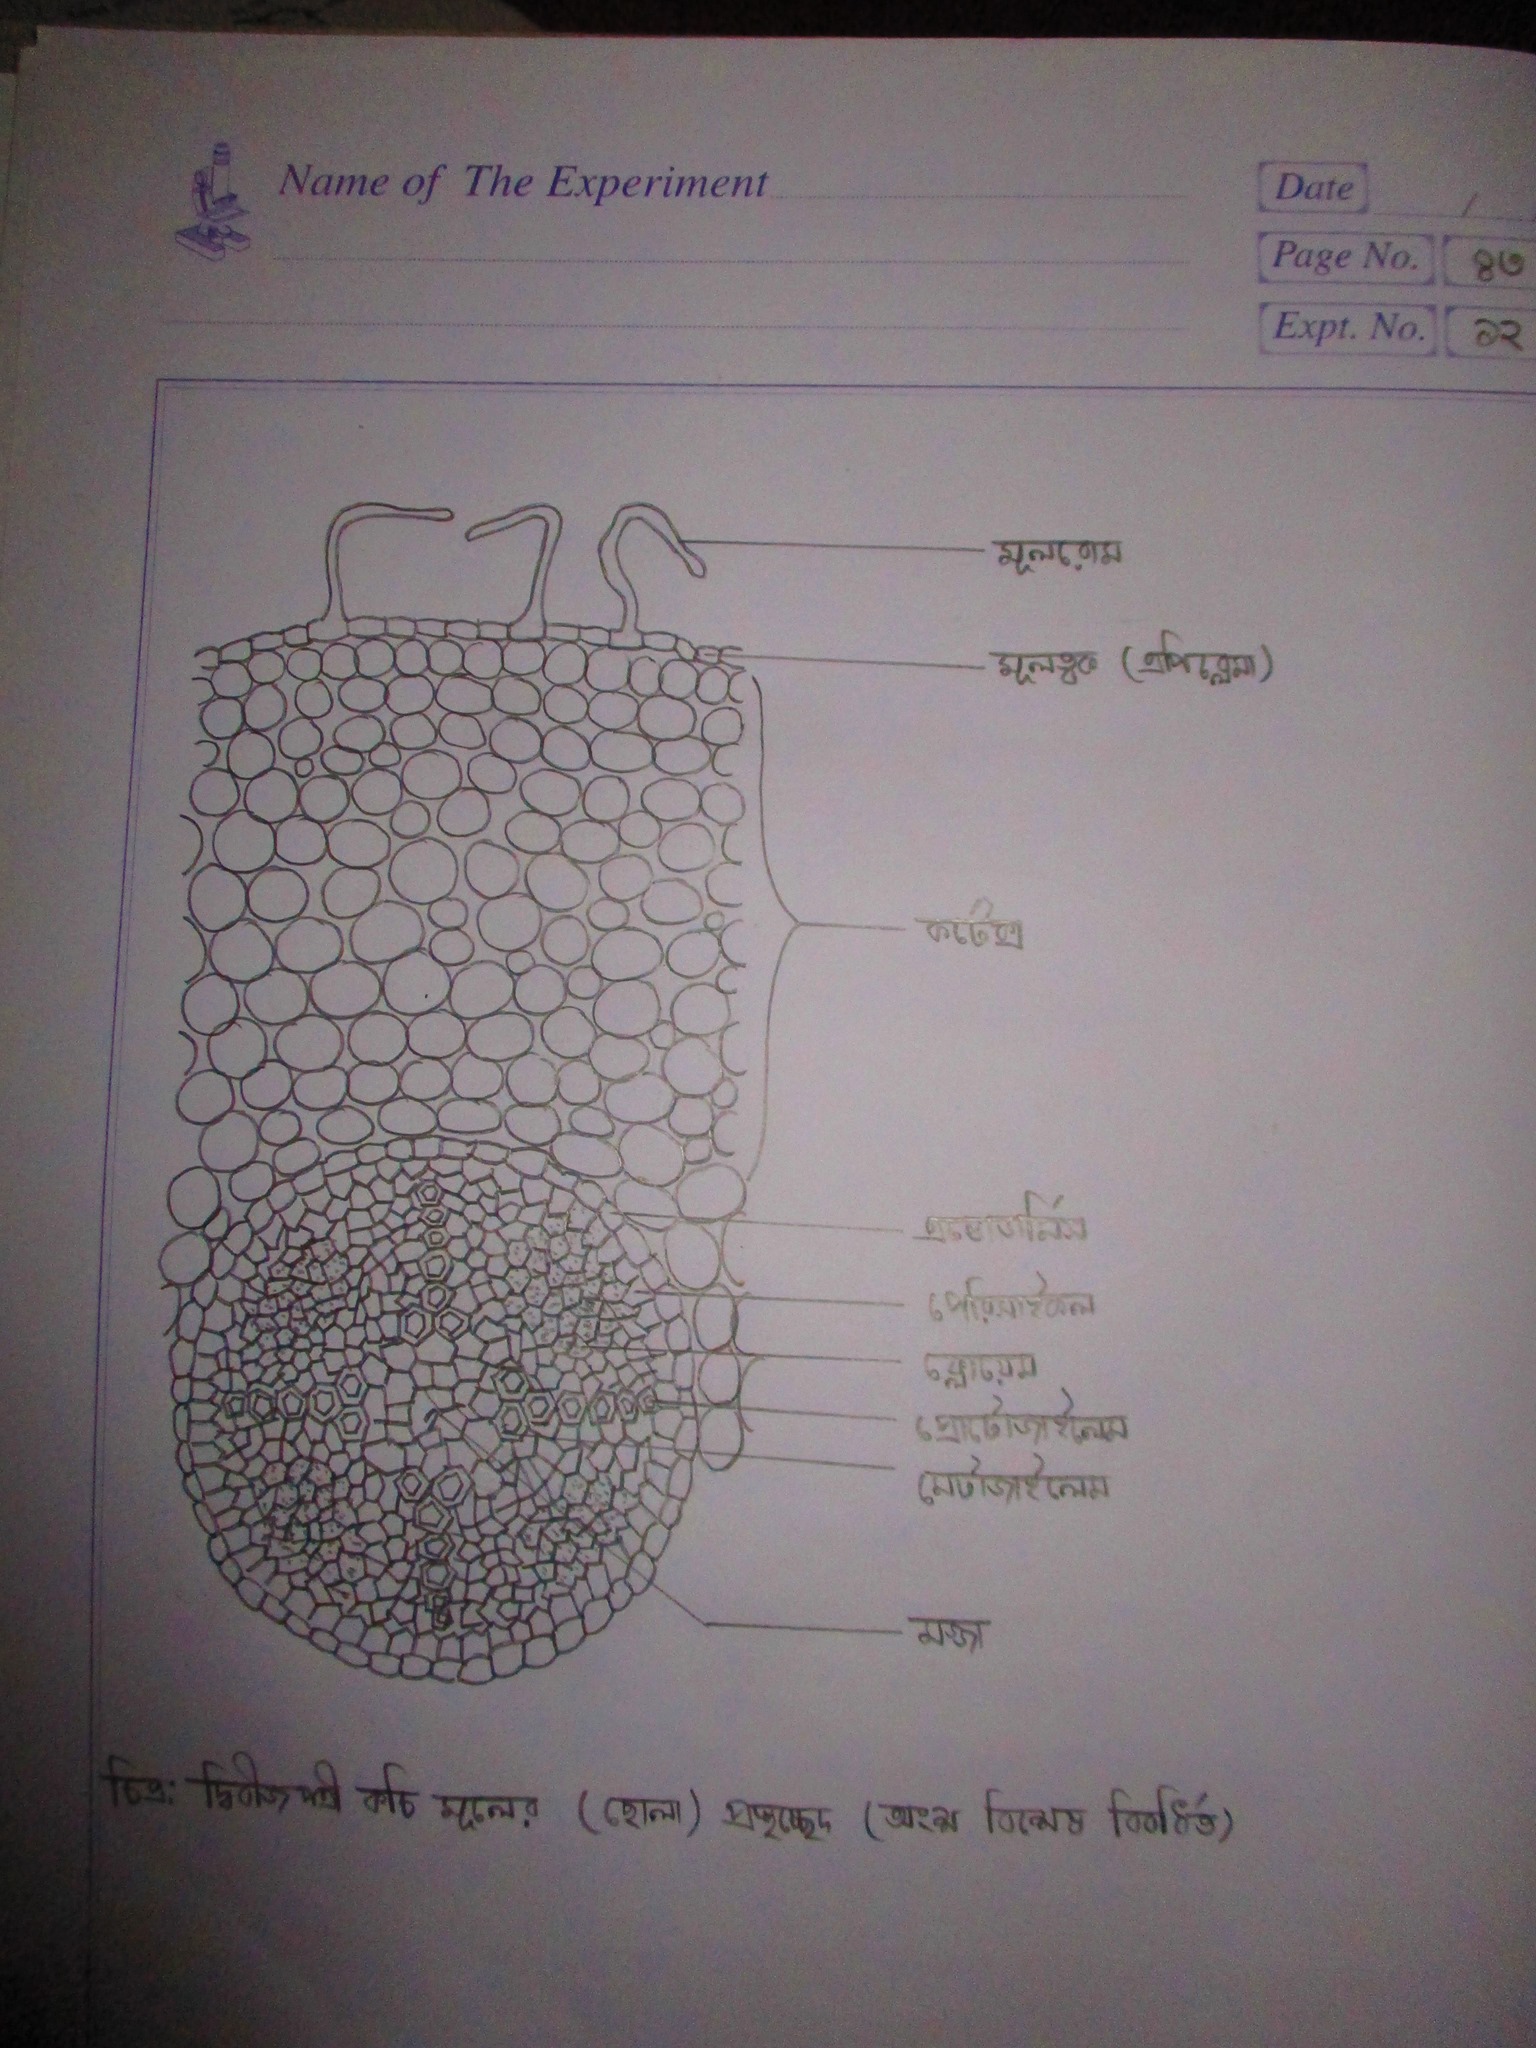 Name of The Experiment
Date /
Page No. ৪৩
Expt. No. ১২
মূলরোম
মূলত্বক (এপিব্লেমা)
কর্টেক্স
এন্ডোডার্মিস
পেরিসাইকল
ফ্লোয়েম
প্রোটোজাইলেম
মেটাজাইলেম
মজ্জা
চিত্র: দ্বিবীজপত্রী কচি মূলের (ছোলা) প্রস্থচ্ছেদ (অংশ বিশেষ বিবর্ধিত)